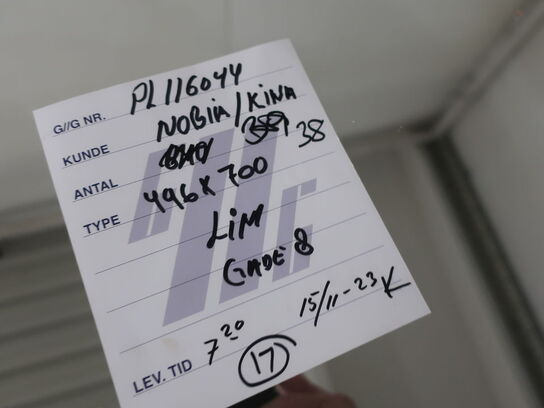 G//G NR. PL116044
KUNDE NOBIA/KINA
ANTAL 38
TYPE 496X700
LIM
GADE 8
15/11-23 K
LEV. TID 7²⁰ 17